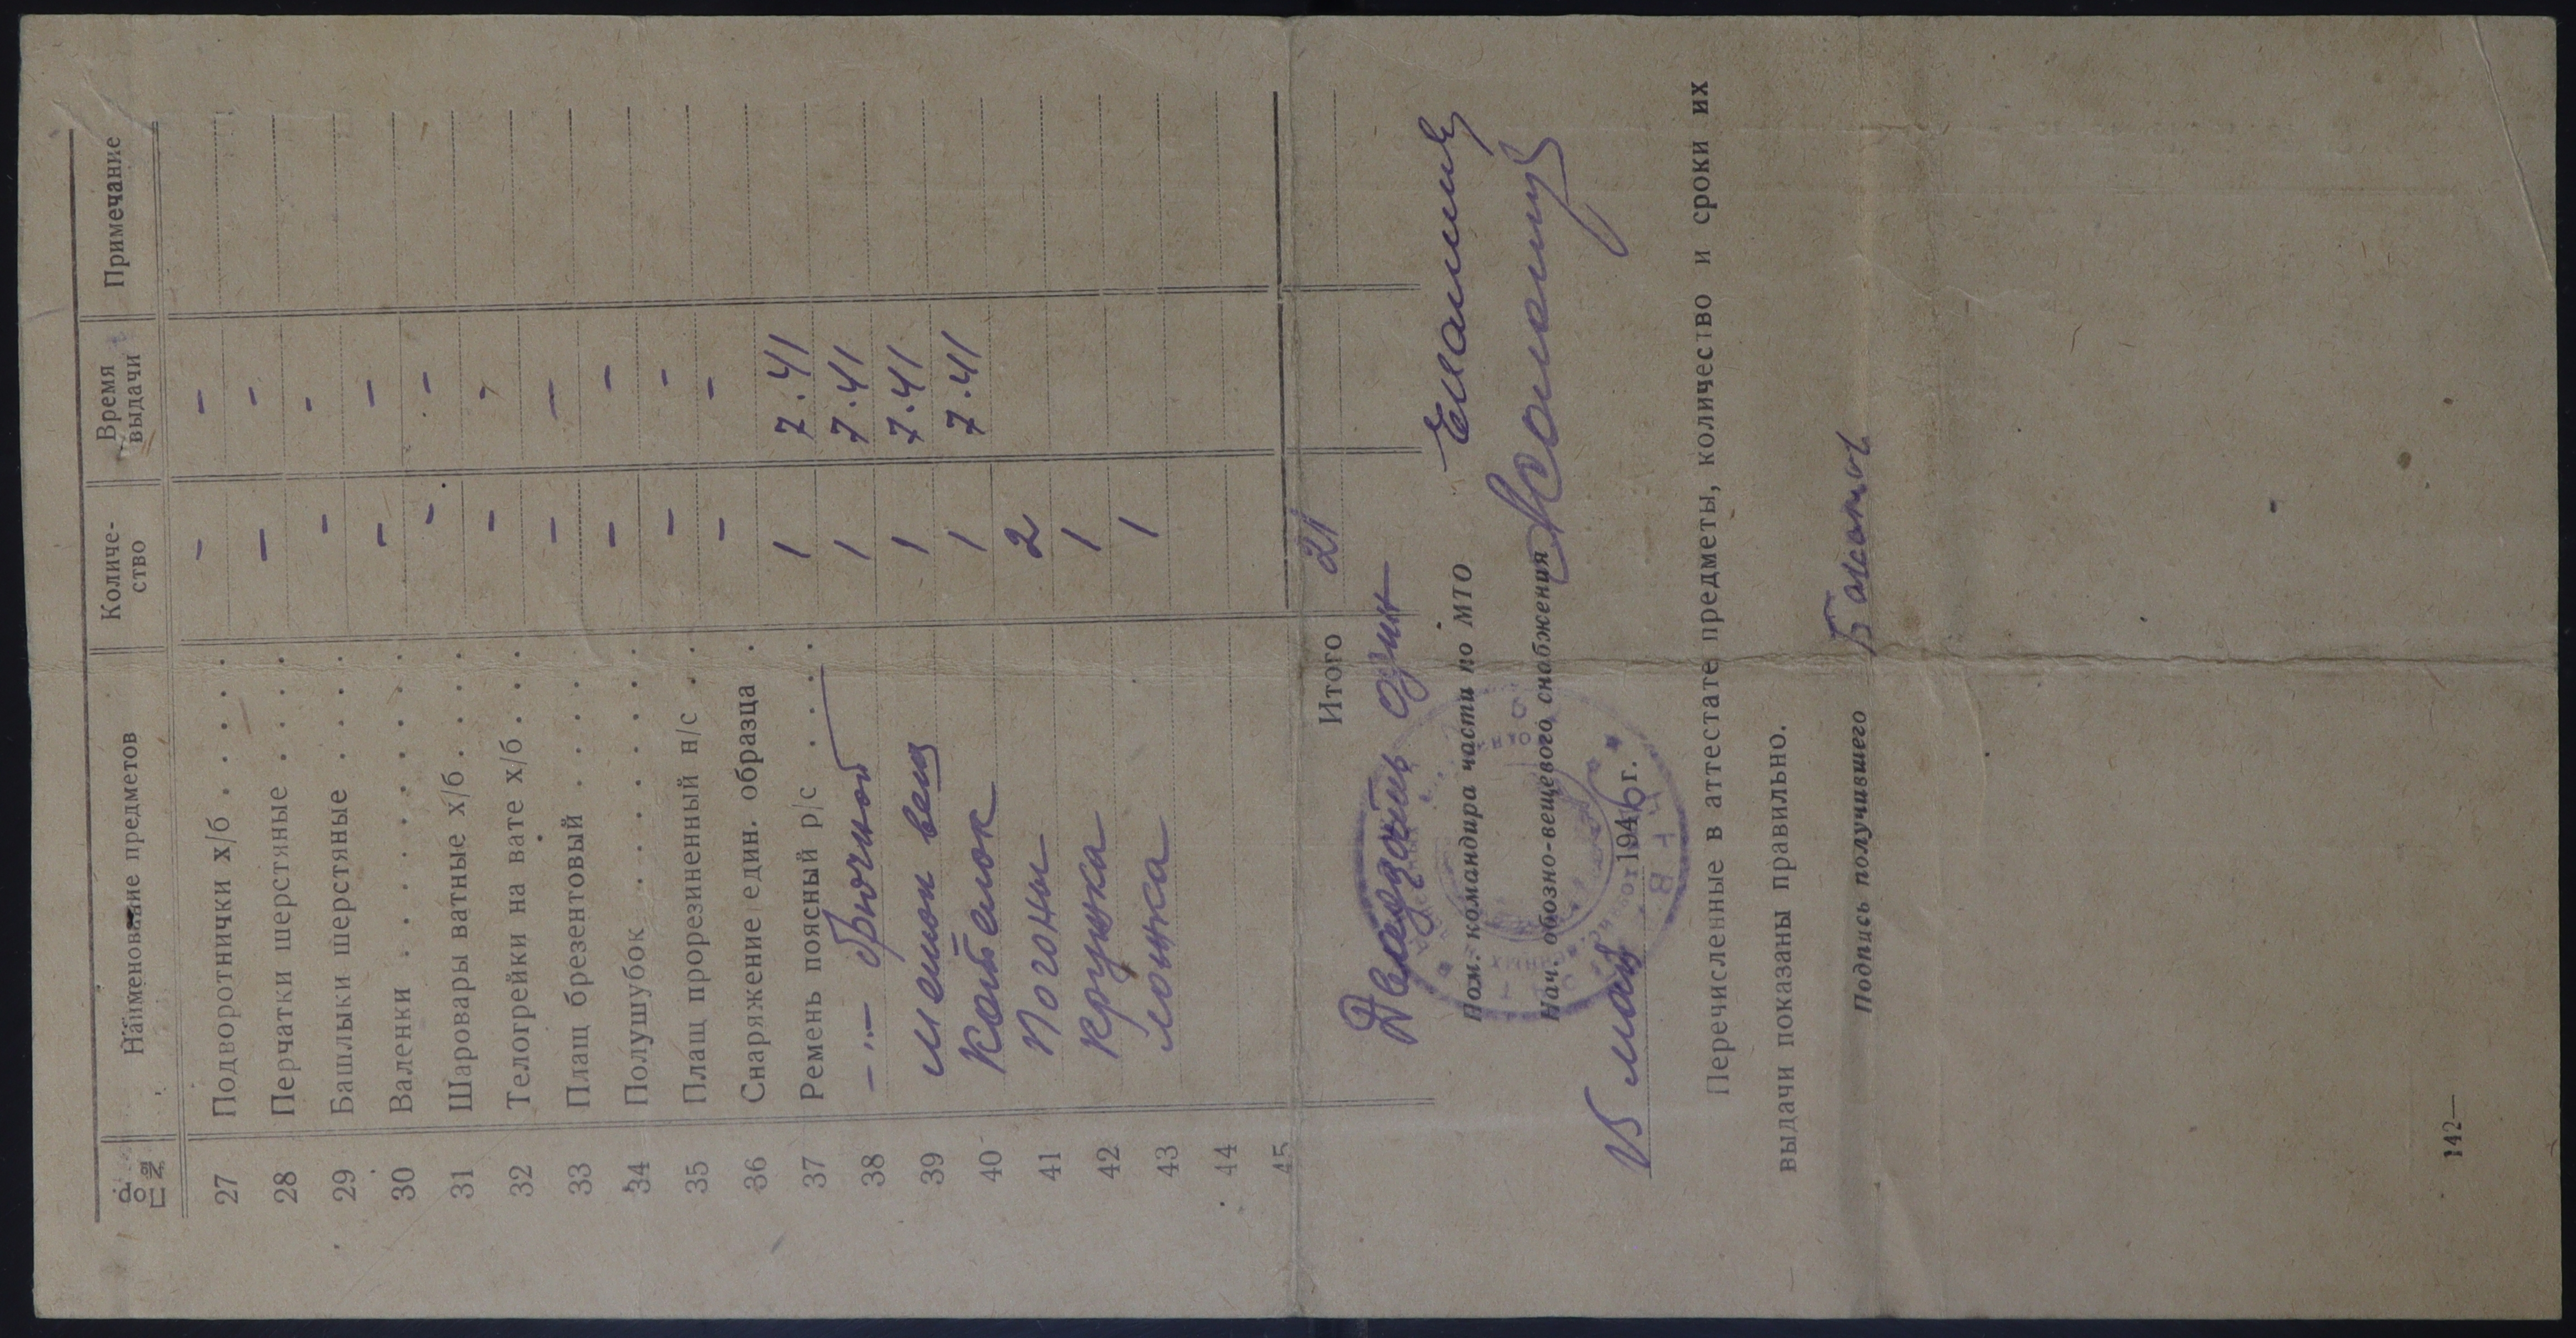 №№ п/пор. Наименование предметов Количество Время выдачи Примечание
27 Подворотнички х/б . . . . . - -
28 Перчатки шерстяные . . . . - -
29 Башлыки шерстяные . . . . - -
30 Валенки . . . . . . . . - -
31 Шаровары ватные х/б . . . . - -
32 Телогрейки на вате х/б . . . - -
33 Плащ брезентовый . . . . - -
34 Полушубок . . . . . . . - -
35 Плащ прорезиненный н/с . . - -
36 Снаряжение един. образца . - -
37 Ремень поясный р/с . . . . 1 7.41
38 -"- брючной 1 7.41
39 мешок вещ 1 7.41
40 Котелок 1 7.41
41 Погоны 2
42 кружка 1
43 ложка 1
44
45
Итого 21
Двадцать один
Пом. командира части по МТО
Нач. обозно-вещевого снабжения
15 мая 1946 г.
Перечисленные в аттестате предметы, количество и сроки их
выдачи показаны правильно.
Подпись получившего
142—